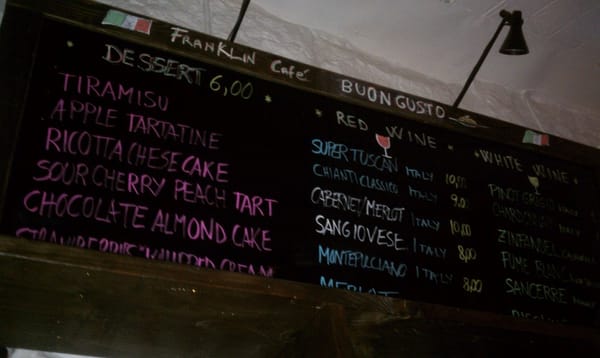 Franklin Café BUONGUSTO
* DESSERT 6,00 *
TIRAMISU
APPLE TARTATINE
RICOTTA CHESE CAKE
SOUR CHERRY PEACH TART
CHOCOLATE ALMOND CAKE
STRAWBERRIES WHIPPED CREAM
* RED WINE *
SUPER TUSCAN ITALY 10,00
CHIANTI CLASSICO ITALY 9,00
CABERNET/MERLOT ITALY 10,00
SANGIOVESE ITALY 8,00
MONTEPULCIANO ITALY 8,00
MERLOT
* WHITE WINE *
PINOT GRIGIO ITALY
CHARDONNAY ITALY
ZINFANDEL
FUME BLANC
SANCERRE